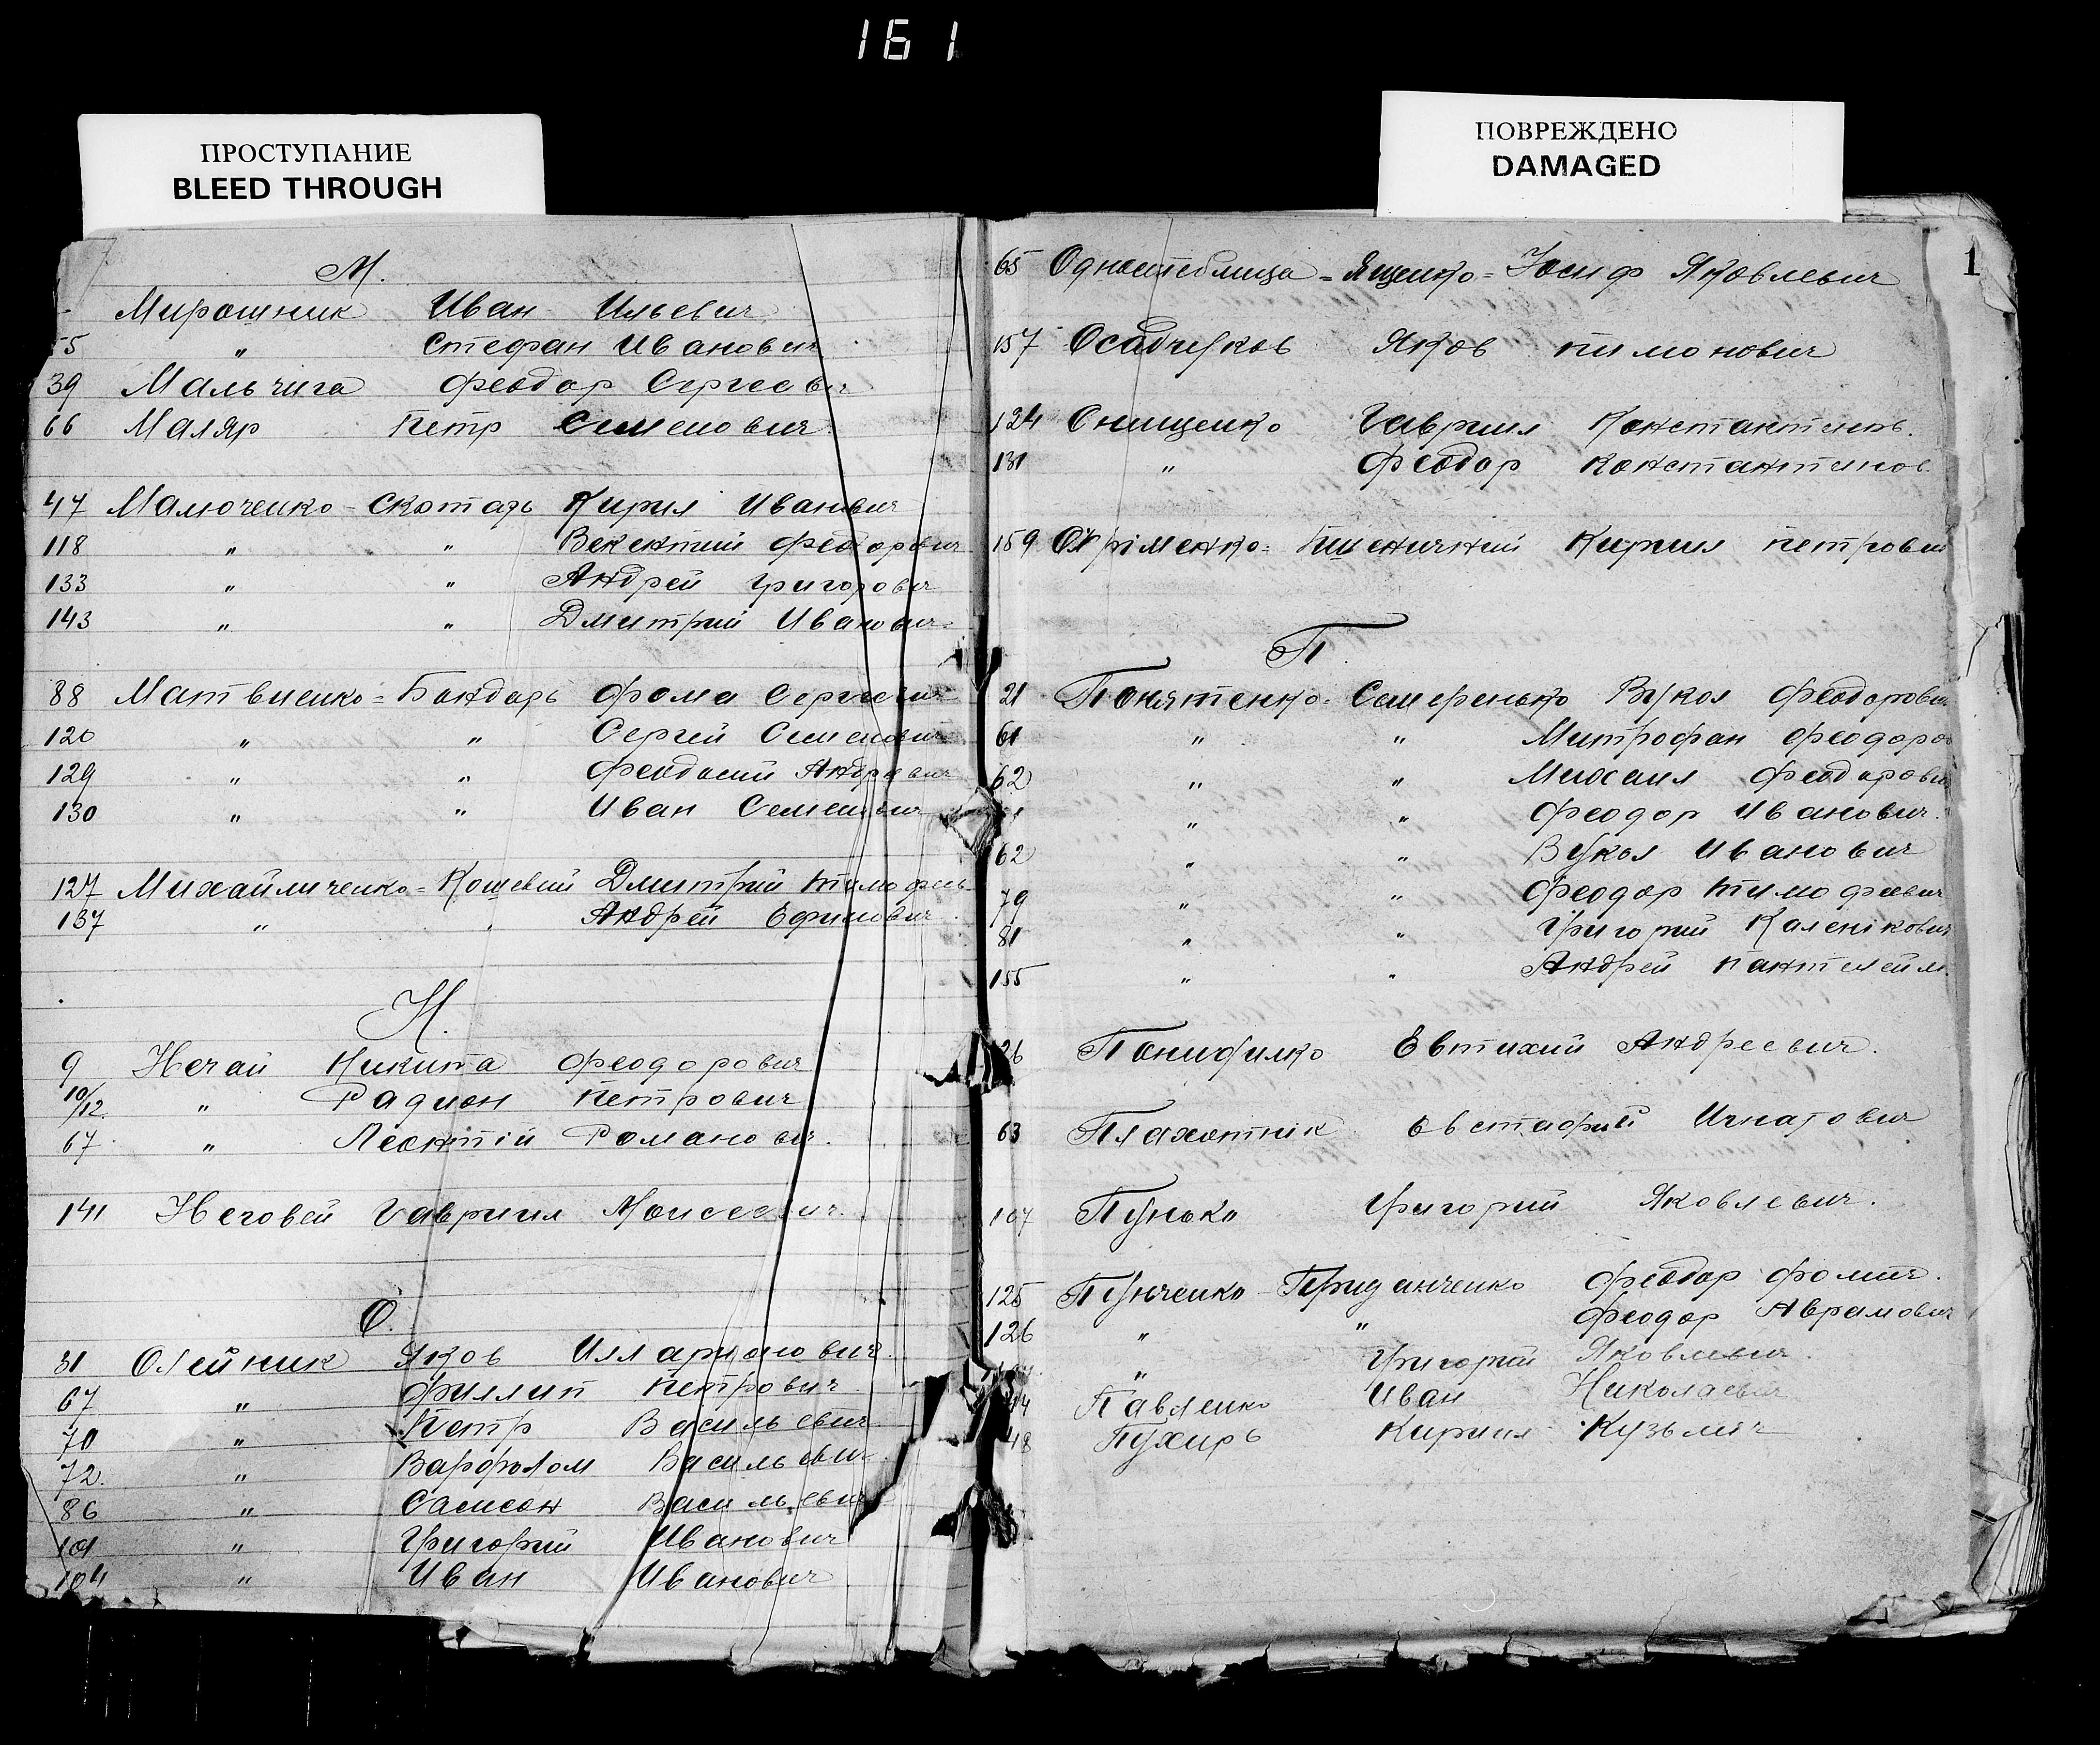 161
ПРОСТУПАНИЕ
BLEED THROUGH
ПОВРЕЖДЕНО
DAMAGED
М.
Мирошник Иван Ильевич
55 " Стефан Иванович
39 Мальчига Феодор Сергеевич
66 Маляр Петр Семенович
47 Малюченко - Скотарь Кирил Иванович
118 " " Векентий Феодорович
133 " " Андрей Григорович
143 " " Дмитрий Иванович
88 Матвиенко = Бондарь Фома Сергеевич
120 " " Сергей Семенович
129 " " Феодосий Андреевич
130 " " Иван Семенович
127 Михайличенко = Кошевий Дмитрий Тимофеев
137 " " Андрей Ефимович
Н.
9 Нечай Никита Феодорович
10/12 " Радион Петрович
67 " Леонтій Романович.
141 Неговей Гавриил Моисеевич.
О.
31 Олейник Яков Илларионович
67 " Филлип Петрович
70 " Петр Васильевич
72. " Варфолом Васильевич
86 " Самсон Васильевич
101 " Григорий Иванович
104 " Иван Иванович
1
65 Одностеблица = Ященко = Іосиф Яковлевич
157 Осадчуков Яков Пимонович
124 Онищенко Гавриил Константинов.
131 " Феодор Константинов.
159 Охріменко = Пшеничний Кирил Петрович
П.
21 Понятенко = Семеренько Вукол Феодорович
61 " " Митрофан Феодоров
62 " " Михаил Феодорович
" " Феодор Иванович.
62 " " Вукол Иванович
79 " " Феодор Тимофеевич
81 " " Григорий Каленікович
155 " " Андрей Пантелейм.
26 Понифилко Евтихий Андреевич.
63 Плахотнік Евстафий Игнатович
107 Пунько Григорий Яковлевич.
125 Пунченко - Приданченко Феодор Фомич.
126 " " Феодор Аврамович
" Григорий Яковлевич.
Павленко Иван Николаевич
48 Пухирь Кирилл Кузьмич